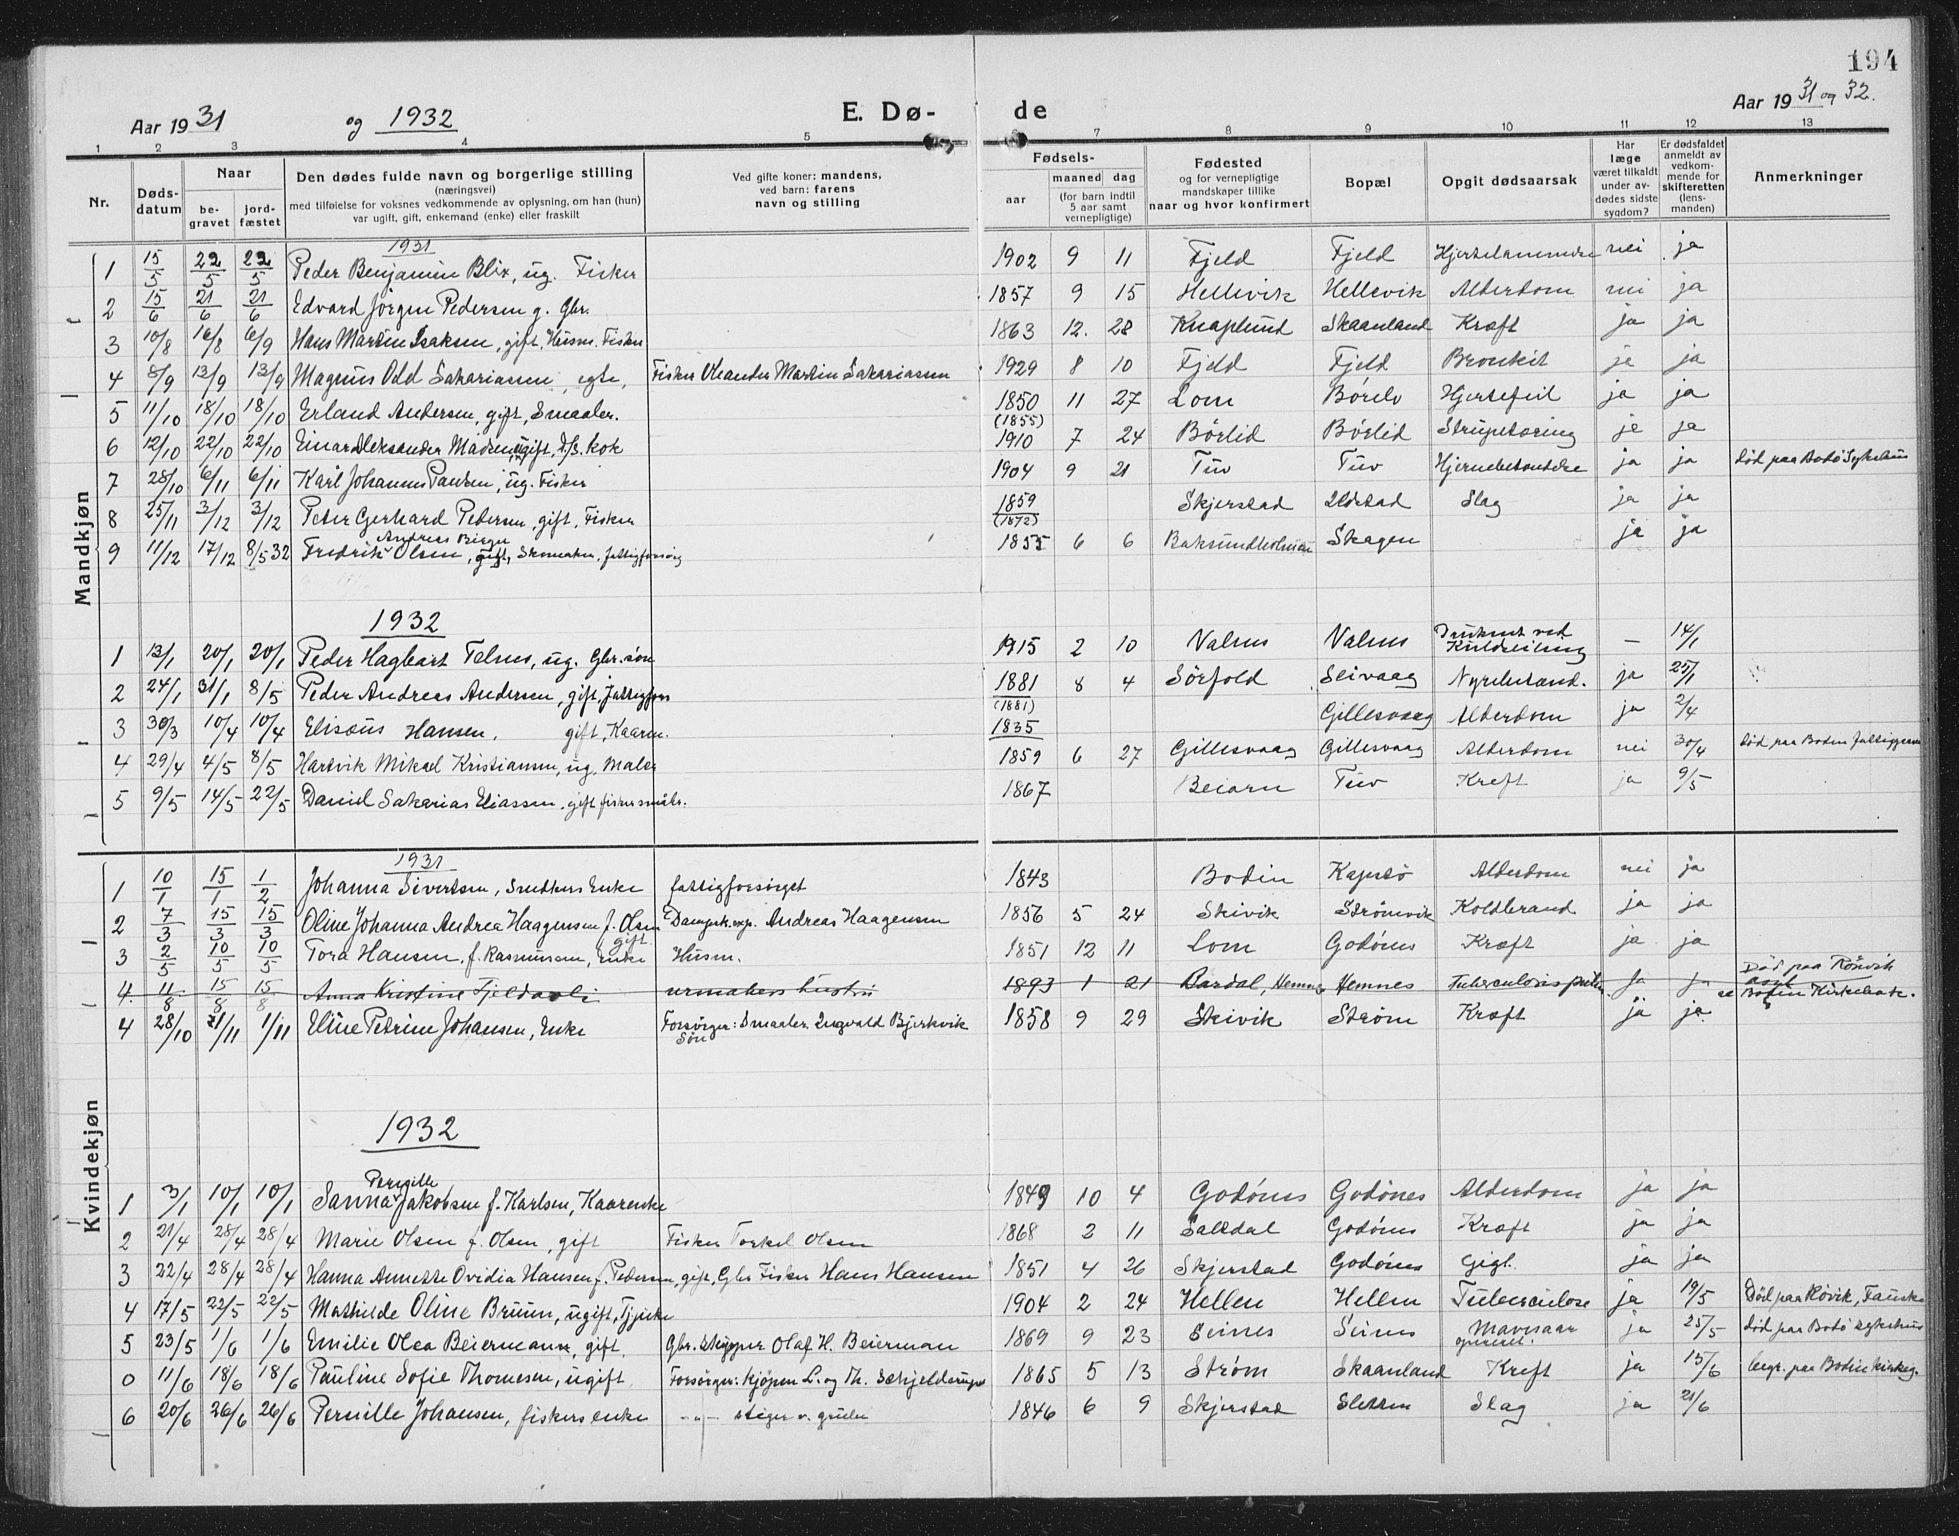 194
Aar 1931 og 1932 E. Dø- de Aar 1931 og 32.
1 2 3 4 5 6 7 8 9 10 11 12 13
Nr. Døds-datum Naar be-gravet jord-fæstet Den dødes fulde navn og borgerlige stilling (næringsvei) med tilføielse for voksnes vedkommende av oplysning, om han (hun) var ugift, gift, enkemand (enke) eller fraskilt Ved gifte koner: mandens, ved barn: farens navn og stilling Fødsels- aar maaned dag (for barn indtil 5 aar samt vernepligtige) Fødested og for vernepligtige mandskaper tillike naar og hvor konfirmert Bopæl Opgit dødsaarsak Har læge været tilkaldt under av-dødes sidste sygdom? Er dødsfaldet anmeldt av vedkom-mende for skifteretten (lens-manden) Anmerkninger
Mandkjøn
1931
1 15/5 22/5 22/5 Peder Benjamin Blix, ug. Fisker 1902 9 11 Fjeld Fjeld nei ja
2 15/6 21/6 21/6 Edvard Jörgen Pedersen g. Gbr. 1857 9 15 Hellevik Hellevik Alderdom nei ja
3 10/8 16/8 6/9 Hans Martin Isaksen, gift, Husm. Fisker 1863 12. 28 Knaplund Skaanland Kræft ja ja
4 8/9 13/9 13/9 Magnus Odd Sakariassen, egte, Fisker Meander Martin Sakariassen 1929 8 10 Fjeld Fjeld Bronkit ja ja
5 11/10 18/10 18/10 Erland Andersen, gift, Smaabr. 1850 (1855) 11 27 Lom Børelv Hjertefeil ja ja
6 12/10 22/10 22/10 Einar Aleksander Madsen, ugift, D/S. kok 1910 7 24 Börlid Börlid Strupetæring ja ja
7 28/10 6/11 6/11 Karl Johannes Paulsen, ug. Fisker 1904 9 21 Tuv Tuv Hjernebetændelse ja ja död paa Bodö Sykehus
8 25/11 3/12 3/12 Peter Gerhard Pedersen, gift, Fisker 1859 (1872) Skjerstad Slag ja ja
9 11/12 17/12 8/5 32 Fredrik Andreas Birger Olsen, gift, Skomaker, fattigforsørg 1855 6 6 Baksundholmen Skagen ja ja
1932
1 13/1 20/1 20/1 Peder Hagbart Telnes, ug. Gbr. sön 1915 2 10 Valnes Valnes Druknet ved Kuldseiling — 14/1
2 24/1 31/1 8/5 Peder Andreas Andersen, gift, fattigfors 1881 (1881) 8 4 Sörfold Seivaag Nyrebetænd. ja 25/1
3 30/3 10/4 10/4 Elisæus Hansen, gift, Kaarm. 1835 Gillesvaag Alderdom ja 2/4
4 29/4 4/5 8/5 Hartvik Mikal Kristiansen, ug. Maler 1859 6 27 Gillesvaag Gillesvaag Alderdom nei 30/4 död paa Bodin
5 9/5 14/5 22/5 Daniel Sakarias Eliassen, gift fisker småbr. 1867 Beiarn Tuv Kreft ja 9/5
Kvindekjøn
1931
1 10/1 15/1 1/2 Johanna Sivertsen, Snedkers Enke fattigforsørget 1843 Bodin Kapstö Alderdom nei ja
2 7/3 15/3 15/3 Oline Johanna Andrea Haagensen f. Olsen gift Dampsk.exp. Andreas Haagensen 1856 5 24 Skivik Strömvik Koldbrand ja ja
3 2/5 10/5 10/5 Tora Hansen, f. Rasmussen, Enke Husm. 1851 12 11 Lom Godönes Kræft ja ja
4. 11/8 15/8 15/8 Anna Kristine Fjeldavli urmakers hustru 1893 1 21 Bardal, Hemnes Hemnes Tuberculosis pulm. ja ja Död paa Rönvik asyl se Bodin Kirkebok.
4 28/10 1/11 1/11 Eline Petrine Johansen, Enke Forsörger: Smaabr. Ingvald Bjerkvik Sön 1858 9 29 Skivik Ström Kræft ja ja
1932
1 3/1 10/1 10/1 Sanna Pernille Jakobsen f. Karlsen, Kaarenke 1849 10 4 Godönes Godönes Alderdom ja ja
2 21/4 28/4 28/4 Marie Olsen f. Olsen, gift Fisker Torkel Olsen 1868 2 11 Saltdal Godönes Kræft ja ja
3 22/4 28/4 28/4 Hanna Annette Ovidia Hansen f. Pedersen, gift, Gbr. Fisker Hans Hansen 1851 4 26 Skjerstad Godönes Gigt ja ja
4 17/5 22/5 22/5 Mathilde Oline Bruun, ugift, Tj.pike 1904 2 24 Hellen Hellen Tuberculose ja 19/5 Död paa Kövik, Fauske
5 23/5 1/6 1/6 Emilie Olea Beiermann, gift. Gbr. skipper Olaf H. Beierman 1869 9 23 Seines Seines Mavesaar operert ja 25/5 död paa Bodö sykehus
0 11/6 18/6 18/6 Pauline Sofie Thomesen, ugift Forsörger: kjöpm L. og Th. Schjelderup 1865 5 13 Ström Skaanland Kreft ja 15/6 begr. paa Bodin kirkeg.
6 20/6 26/6 26/6 Pernille Johansen, fiskers enke —"— stiger v. gruber 1846 6 9 Skjerstad Sletten Slag ja 21/6